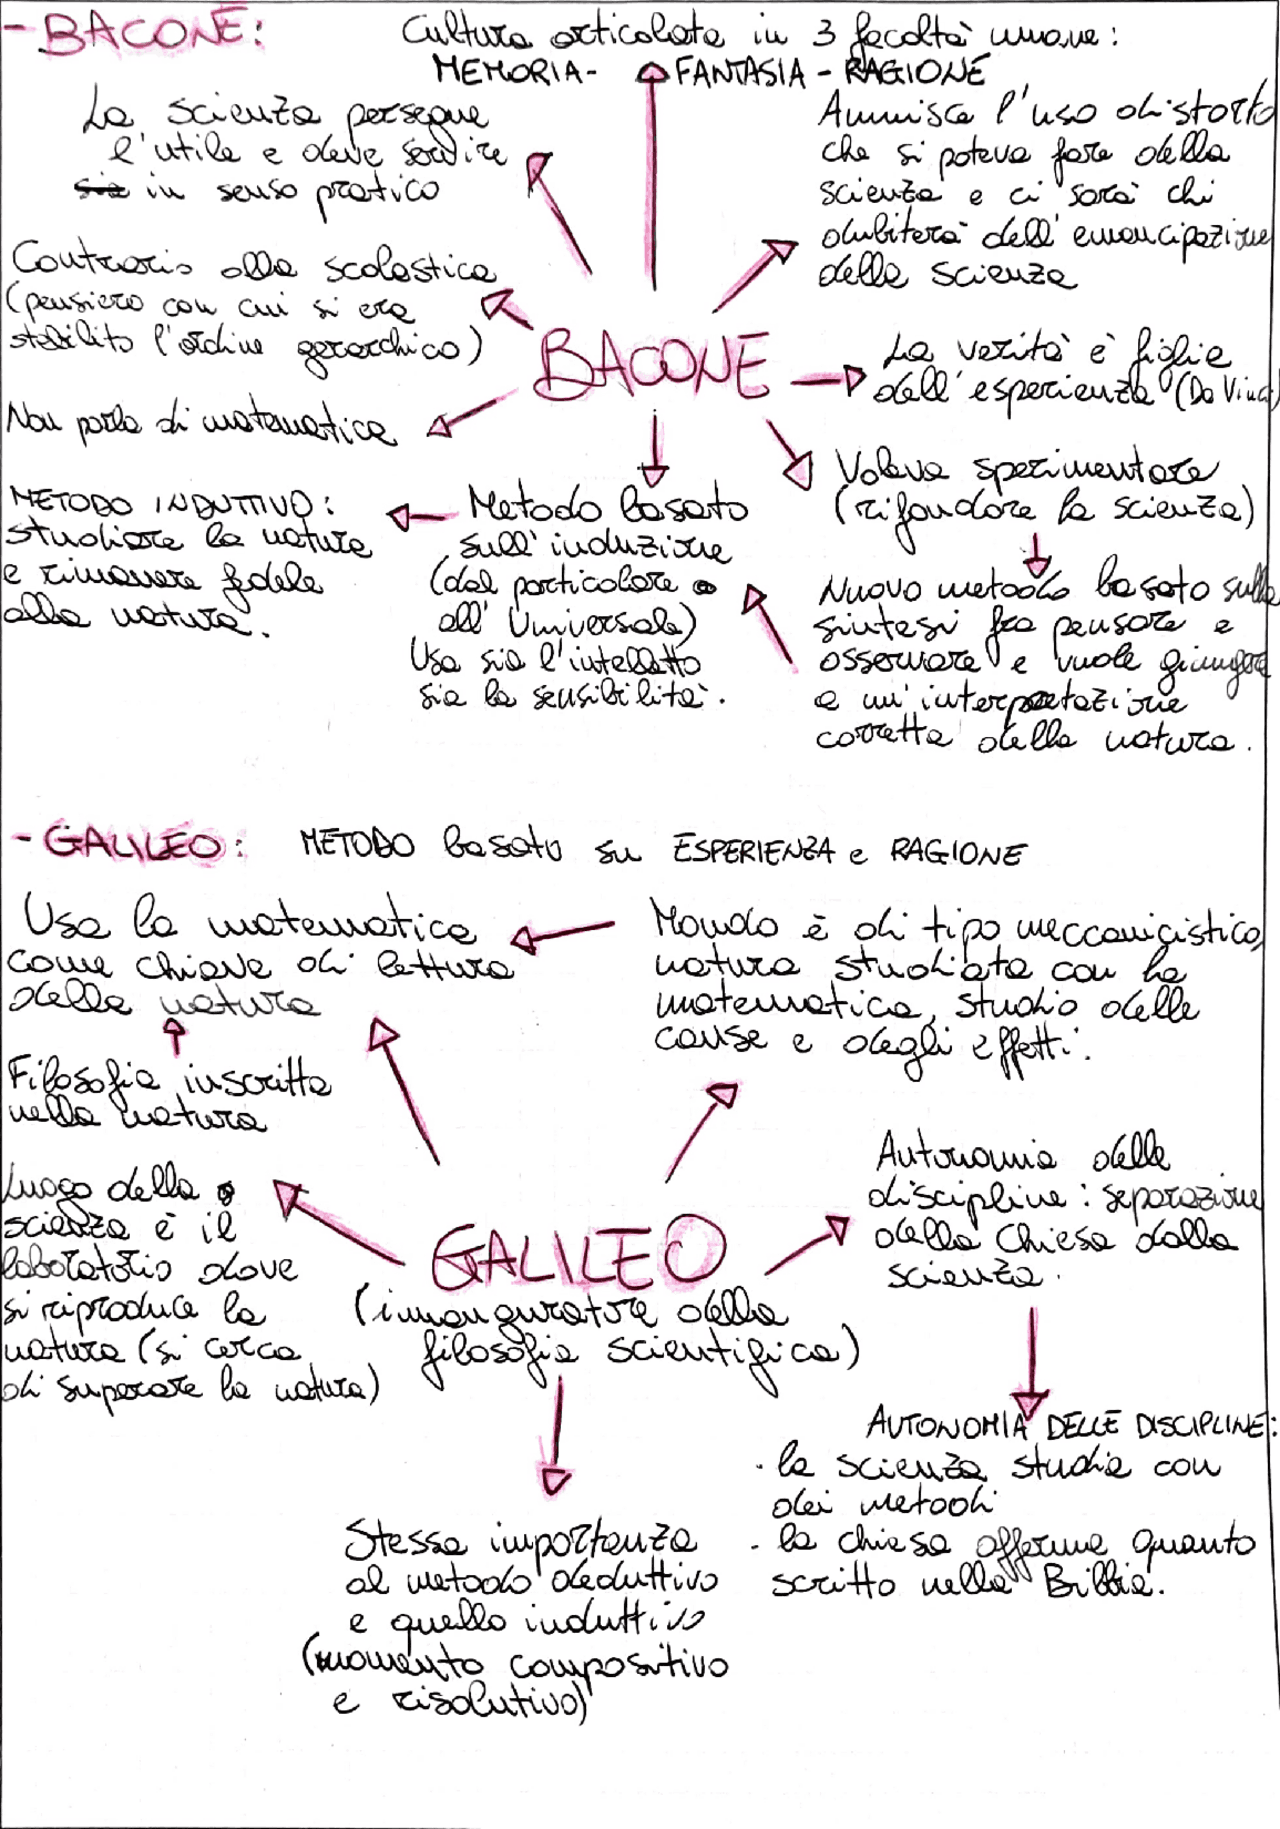 - BACONE:
Cultura articolata in 3 facoltà umane:
MEMORIA - FANTASIA - RAGIONE
La scienza persegue
l'utile e deve servire
sia in senso pratico
Ammisce l'uso distorto
che si poteva fare della
scienza e ci sarà chi
dubiterà dell'emancipazione
della scienza
Contrario alla scolastica
(pensiero con cui si era
stabilito l'ordine gerarchico)
BACONE
La verità è figlia
dell'esperienza (Da Vinci)
Non parla di matematica
Voleva sperimentare
(rifondare la scienza)
METODO INDUTTIVO:
studiare la natura
e rimanere fedele
alla natura.
Metodo basato
sull'induzione
(dal particolare
all'Universale)
Usa sia l'intelletto
sia la sensibilità.
Nuovo metodo basato sulla
sintesi fra pensare e
osservare e vuole giungere
a un'interpretazione
corretta della natura.
- GALILEO: METODO basato su ESPERIENZA e RAGIONE
Usa la matematica
come chiave di lettura
della natura
Mondo è di tipo meccanicistico,
natura studiata con la
matematica, studio delle
cause e degli effetti.
Filosofia inscritta
nella natura
Autonomia delle
discipline: separazione
della Chiesa dalla
scienza.
Luogo della
scienza è il
laboratorio dove
si riproduce la
natura (si cerca
di superare la natura)
GALILEO
(inauguratore della
filosofia scientifica)
AUTONOMIA DELLE DISCIPLINE:
· la scienza studia con
dei metodi
- la chiesa afferma quanto
scritto nella Bibbia.
Stessa importanza
al metodo deduttivo
e quello induttivo
(momento compositivo
e risolutivo)